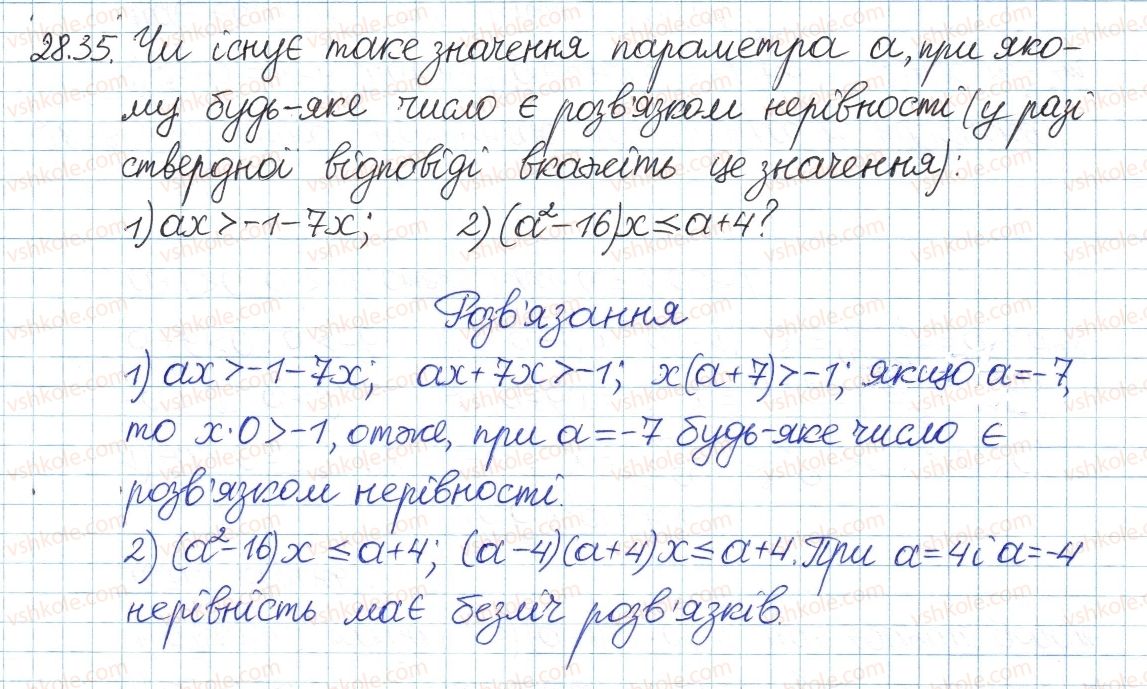 28.35. Чи існує таке значення параметра a, при яко-
му будь-яке число є розв'язком нерівності (у разі
ствердної відповіді вкажіть це значення):
1) ax > -1 - 7x; 2) (a² - 16)x ≤ a + 4?
Розв'язання
1) ax > -1 - 7x; ax + 7x > -1; x(a + 7) > -1; якщо a = -7,
то x · 0 > -1, отже, при a = -7 будь-яке число є
розв'язком нерівності.
2) (a² - 16)x ≤ a + 4; (a - 4)(a + 4)x ≤ a + 4. При a = 4 і a = -4
нерівність має безліч розв'язків.